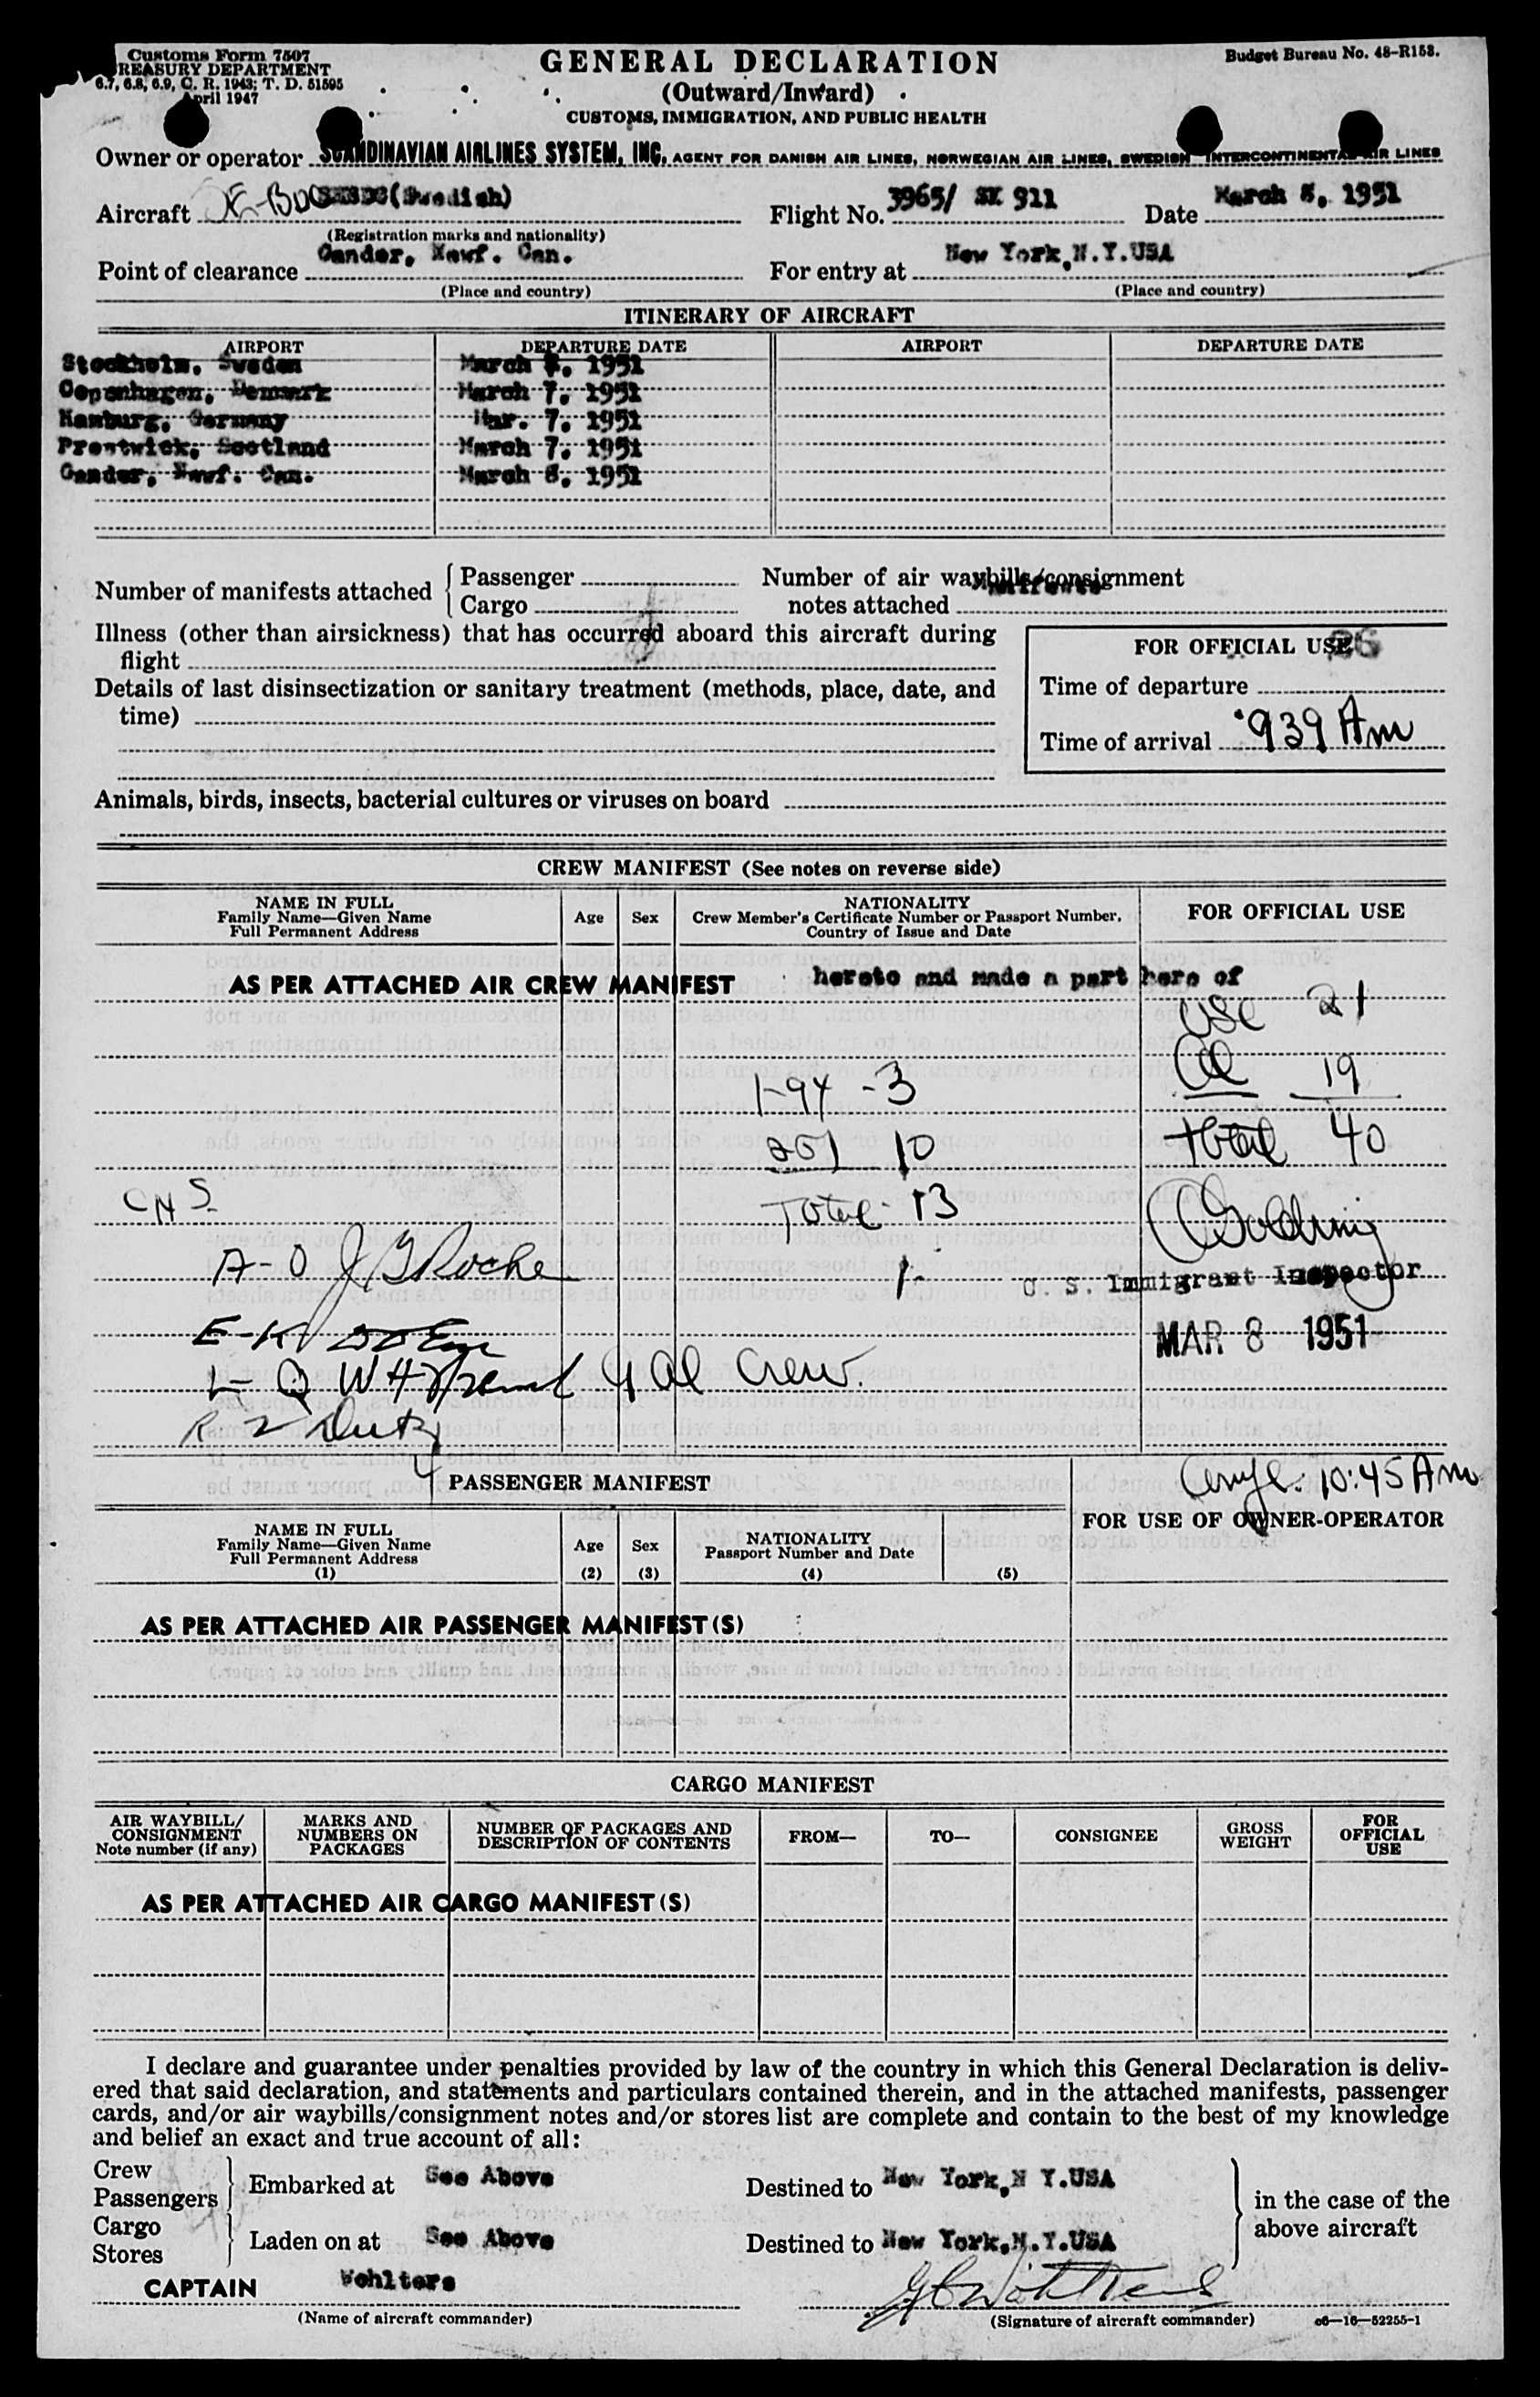 Customs Form 7507
TREASURY DEPARTMENT
6.7, 6.8, 6.9, C. R. 1943; T. D. 51595
April 1947
Budget Bureau No. 48-R153.
GENERAL DECLARATION
(Outward/Inward)
CUSTOMS, IMMIGRATION, AND PUBLIC HEALTH
Owner or operator SCANDINAVIAN AIRLINES SYSTEM, INC, AGENT FOR DANISH AIR LINES, NORWEGIAN AIR LINES, SWEDISH INTERCONTINENTAL AIR LINES
Aircraft (Swedish) Flight No. 3965/ SK 911 Date March 8, 1951
(Registration marks and nationality)
Point of clearance Gander, Newf. Can. For entry at New York,N.Y.USA
(Place and country) (Place and country)
ITINERARY OF AIRCRAFT
AIRPORT DEPARTURE DATE AIRPORT DEPARTURE DATE
Stockholm, Sweden March , 1951
Copenhagen, Denmark March 7, 1951
Hamburg, Germany Mar. 7, 1951
Prestwick, Scotland March 7, 1951
Gander, Newf. Can. March 8, 1951
Number of manifests attached Passenger Number of air waybills/consignment
Cargo notes attached
Illness (other than airsickness) that has occurred aboard this aircraft during
flight
FOR OFFICIAL USE 26
Details of last disinsectization or sanitary treatment (methods, place, date, and
time)
Time of departure
Time of arrival 939 Am
Animals, birds, insects, bacterial cultures or viruses on board
CREW MANIFEST (See notes on reverse side)
NAME IN FULL
Family Name—Given Name
Full Permanent Address
Age Sex
NATIONALITY
Crew Member's Certificate Number or Passport Number,
Country of Issue and Date
FOR OFFICIAL USE
AS PER ATTACHED AIR CREW MANIFEST hereto and made a part here of
USC 21
1-94 -3 Al 19
251 10 total 40
CNS Total 13
A-O J G Roche 1-
U. S. Immigrant Inspector
E-K
MAR 8 1951
L- Q W H 4 al Crew.
R 2 Duty
4
Compl. 10:45 Am
PASSENGER MANIFEST
FOR USE OF OWNER-OPERATOR
NAME IN FULL
Family Name—Given Name
Full Permanent Address
(1)
Age
(2)
Sex
(3)
NATIONALITY
Passport Number and Date
(4)
(5)
AS PER ATTACHED AIR PASSENGER MANIFEST(S)
CARGO MANIFEST
AIR WAYBILL/
CONSIGNMENT
Note number (if any)
MARKS AND
NUMBERS ON
PACKAGES
NUMBER OF PACKAGES AND
DESCRIPTION OF CONTENTS
FROM—
TO—
CONSIGNEE
GROSS
WEIGHT
FOR
OFFICIAL
USE
AS PER ATTACHED AIR CARGO MANIFEST(S)
I declare and guarantee under penalties provided by law of the country in which this General Declaration is deliv-
ered that said declaration, and statements and particulars contained therein, and in the attached manifests, passenger
cards, and/or air waybills/consignment notes and/or stores list are complete and contain to the best of my knowledge
and belief an exact and true account of all:
Crew
Passengers Embarked at See Above Destined to New York,N Y.USA
in the case of the
above aircraft
Cargo
Stores Laden on at See Above Destined to New York,N.Y.USA
CAPTAIN Wohlters
(Name of aircraft commander) (Signature of aircraft commander) c6—16—52255-1